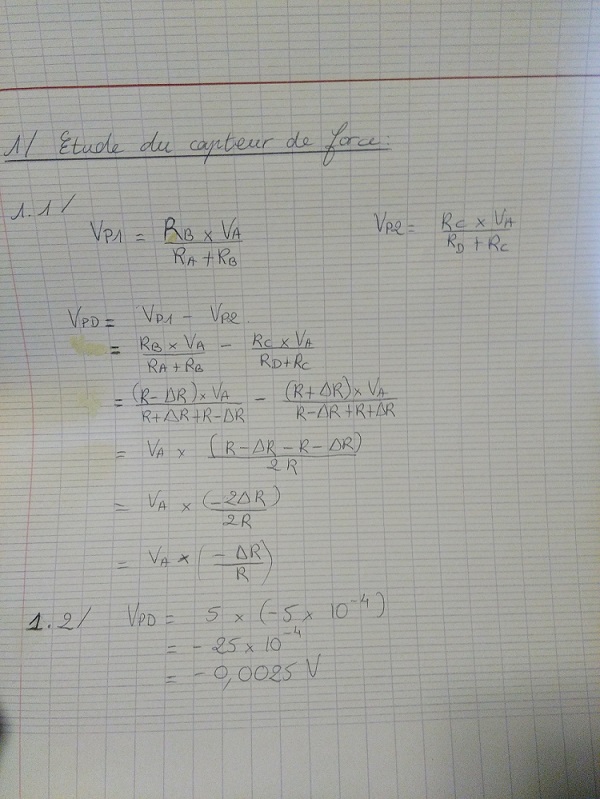 1/ Etude du capteur de force:
1.1/
VP1 = RB x VA / RA + RB    VP2 = RC x VA / RD + RC
VPD = VP1 - VP2.
= RB x VA / RA + RB - RC x VA / RD + RC
= (R - ΔR) x VA / R + ΔR + R - ΔR - (R + ΔR) x VA / R - ΔR + R + ΔR
= VA x (R - ΔR - R - ΔR) / 2R
= VA x (-2ΔR) / 2R
= VA x (-ΔR / R)
1.2/ VPD = 5 x (-5 x 10^-4)
= -25 x 10^-4
= -0,0025 V